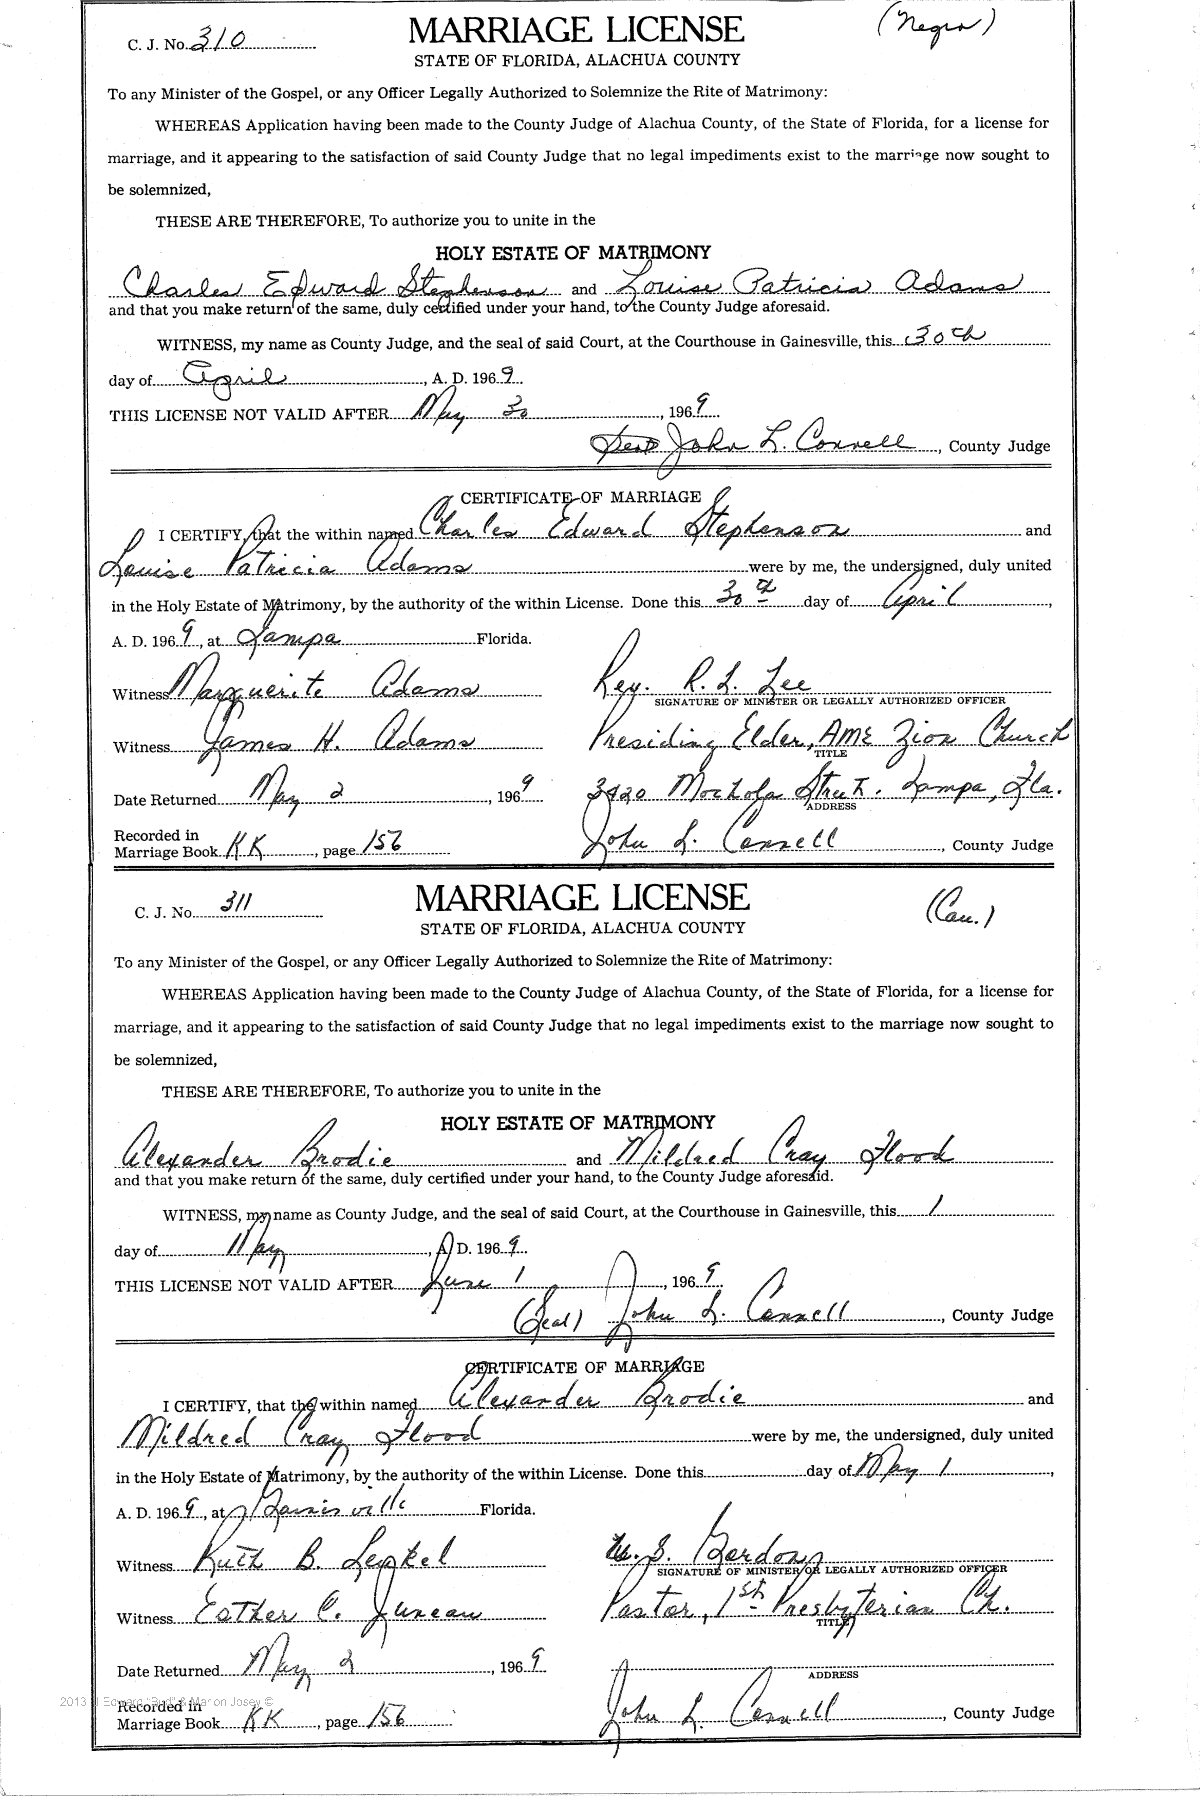 C. J. No. 310
MARRIAGE LICENSE
(Negro)
STATE OF FLORIDA, ALACHUA COUNTY
To any Minister of the Gospel, or any Officer Legally Authorized to Solemnize the Rite of Matrimony:
WHEREAS Application having been made to the County Judge of Alachua County, of the State of Florida, for a license for
marriage, and it appearing to the satisfaction of said County Judge that no legal impediments exist to the marriage now sought to
be solemnized,
THESE ARE THEREFORE, To authorize you to unite in the
HOLY ESTATE OF MATRIMONY
Charles Edward Stephenson and Louise Patricia Adams
and that you make return of the same, duly certified under your hand, to the County Judge aforesaid.
WITNESS, my name as County Judge, and the seal of said Court, at the Courthouse in Gainesville, this 30th
day of April, A. D. 1969.
THIS LICENSE NOT VALID AFTER May 30, 1969.
John L. Connell, County Judge
CERTIFICATE OF MARRIAGE
I CERTIFY, that the within named Charles Edward Stephenson and
Louise Patricia Adams were by me, the undersigned, duly united
in the Holy Estate of Matrimony, by the authority of the within License. Done this 30th day of April,
A. D. 1969, at Tampa Florida.
Witness Marguerite Adams Rev. R. L. Lee
SIGNATURE OF MINISTER OR LEGALLY AUTHORIZED OFFICER
Witness James H. Adams Presiding Elder, AME Zion Church
TITLE
Date Returned May 2, 1969 3420 Street. Tampa, Fla.
ADDRESS
Recorded in
Marriage Book KK, page 156 John L. Connell, County Judge
C. J. No. 311
MARRIAGE LICENSE
(Cau.)
STATE OF FLORIDA, ALACHUA COUNTY
To any Minister of the Gospel, or any Officer Legally Authorized to Solemnize the Rite of Matrimony:
WHEREAS Application having been made to the County Judge of Alachua County, of the State of Florida, for a license for
marriage, and it appearing to the satisfaction of said County Judge that no legal impediments exist to the marriage now sought to
be solemnized,
THESE ARE THEREFORE, To authorize you to unite in the
HOLY ESTATE OF MATRIMONY
Alexander Brodie and Mildred Cray Flood
and that you make return of the same, duly certified under your hand, to the County Judge aforesaid.
WITNESS, my name as County Judge, and the seal of said Court, at the Courthouse in Gainesville, this 1
day of May, A. D. 1969.
THIS LICENSE NOT VALID AFTER June 1, 1969.
(Seal) John L. Connell, County Judge
CERTIFICATE OF MARRIAGE
I CERTIFY, that the within named Alexander Brodie and
Mildred Cray Flood were by me, the undersigned, duly united
in the Holy Estate of Matrimony, by the authority of the within License. Done this day of May 1,
A. D. 1969, at Gainesville Florida.
Witness Ruth B. U. S. Gordon
SIGNATURE OF MINISTER OR LEGALLY AUTHORIZED OFFICER
Witness Esther C. Juneau Pastor, 1st Presbyterian Ch.
TITLE
Date Returned May 2, 1969
ADDRESS
2013 Edward "Bud" & Marion Josey ©
Recorded in
Marriage Book KK, page 156 John L. Connell, County Judge